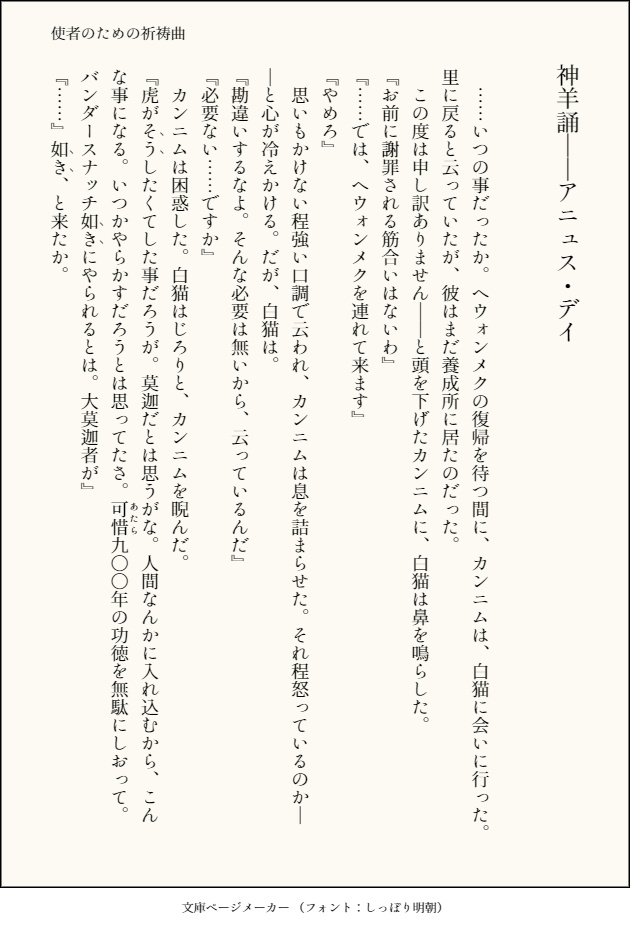 使者のための祈祷曲
神羊誦――アニュス・デイ
……いつの事だったか。ヘウォンメクの復帰を待つ間に、カンニムは、白猫に会いに行った。
里に戻ると云っていたが、彼はまだ養成所に居たのだった。
この度は申し訳ありません――と頭を下げたカンニムに、白猫は鼻を鳴らした。
『お前に謝罪される筋合いはないわ』
『……では、ヘウォンメクを連れて来ます』
『やめろ』
思いもかけない程強い口調で云われ、カンニムは息を詰まらせた。それ程怒っているのか―
―と心が冷えかける。だが、白猫は。
『勘違いするなよ。そんな必要は無いから、云っているんだ』
『必要ない……ですか』
カンニムは困惑した。白猫はじろりと、カンニムを睨んだ。
『虎がそうしたくてした事だろうが。莫迦だとは思うがな。人間なんかに入れ込むから、こん
な事になる。いつかやらかすだろうとは思ってたさ。可惜九〇〇年の功徳を無駄にしおって。
あたら
バンダースナッチ如きにやられるとは。大莫迦者が』
『……』如き、と来たか。
文庫ページメーカー（フォント：しっぽり明朝）